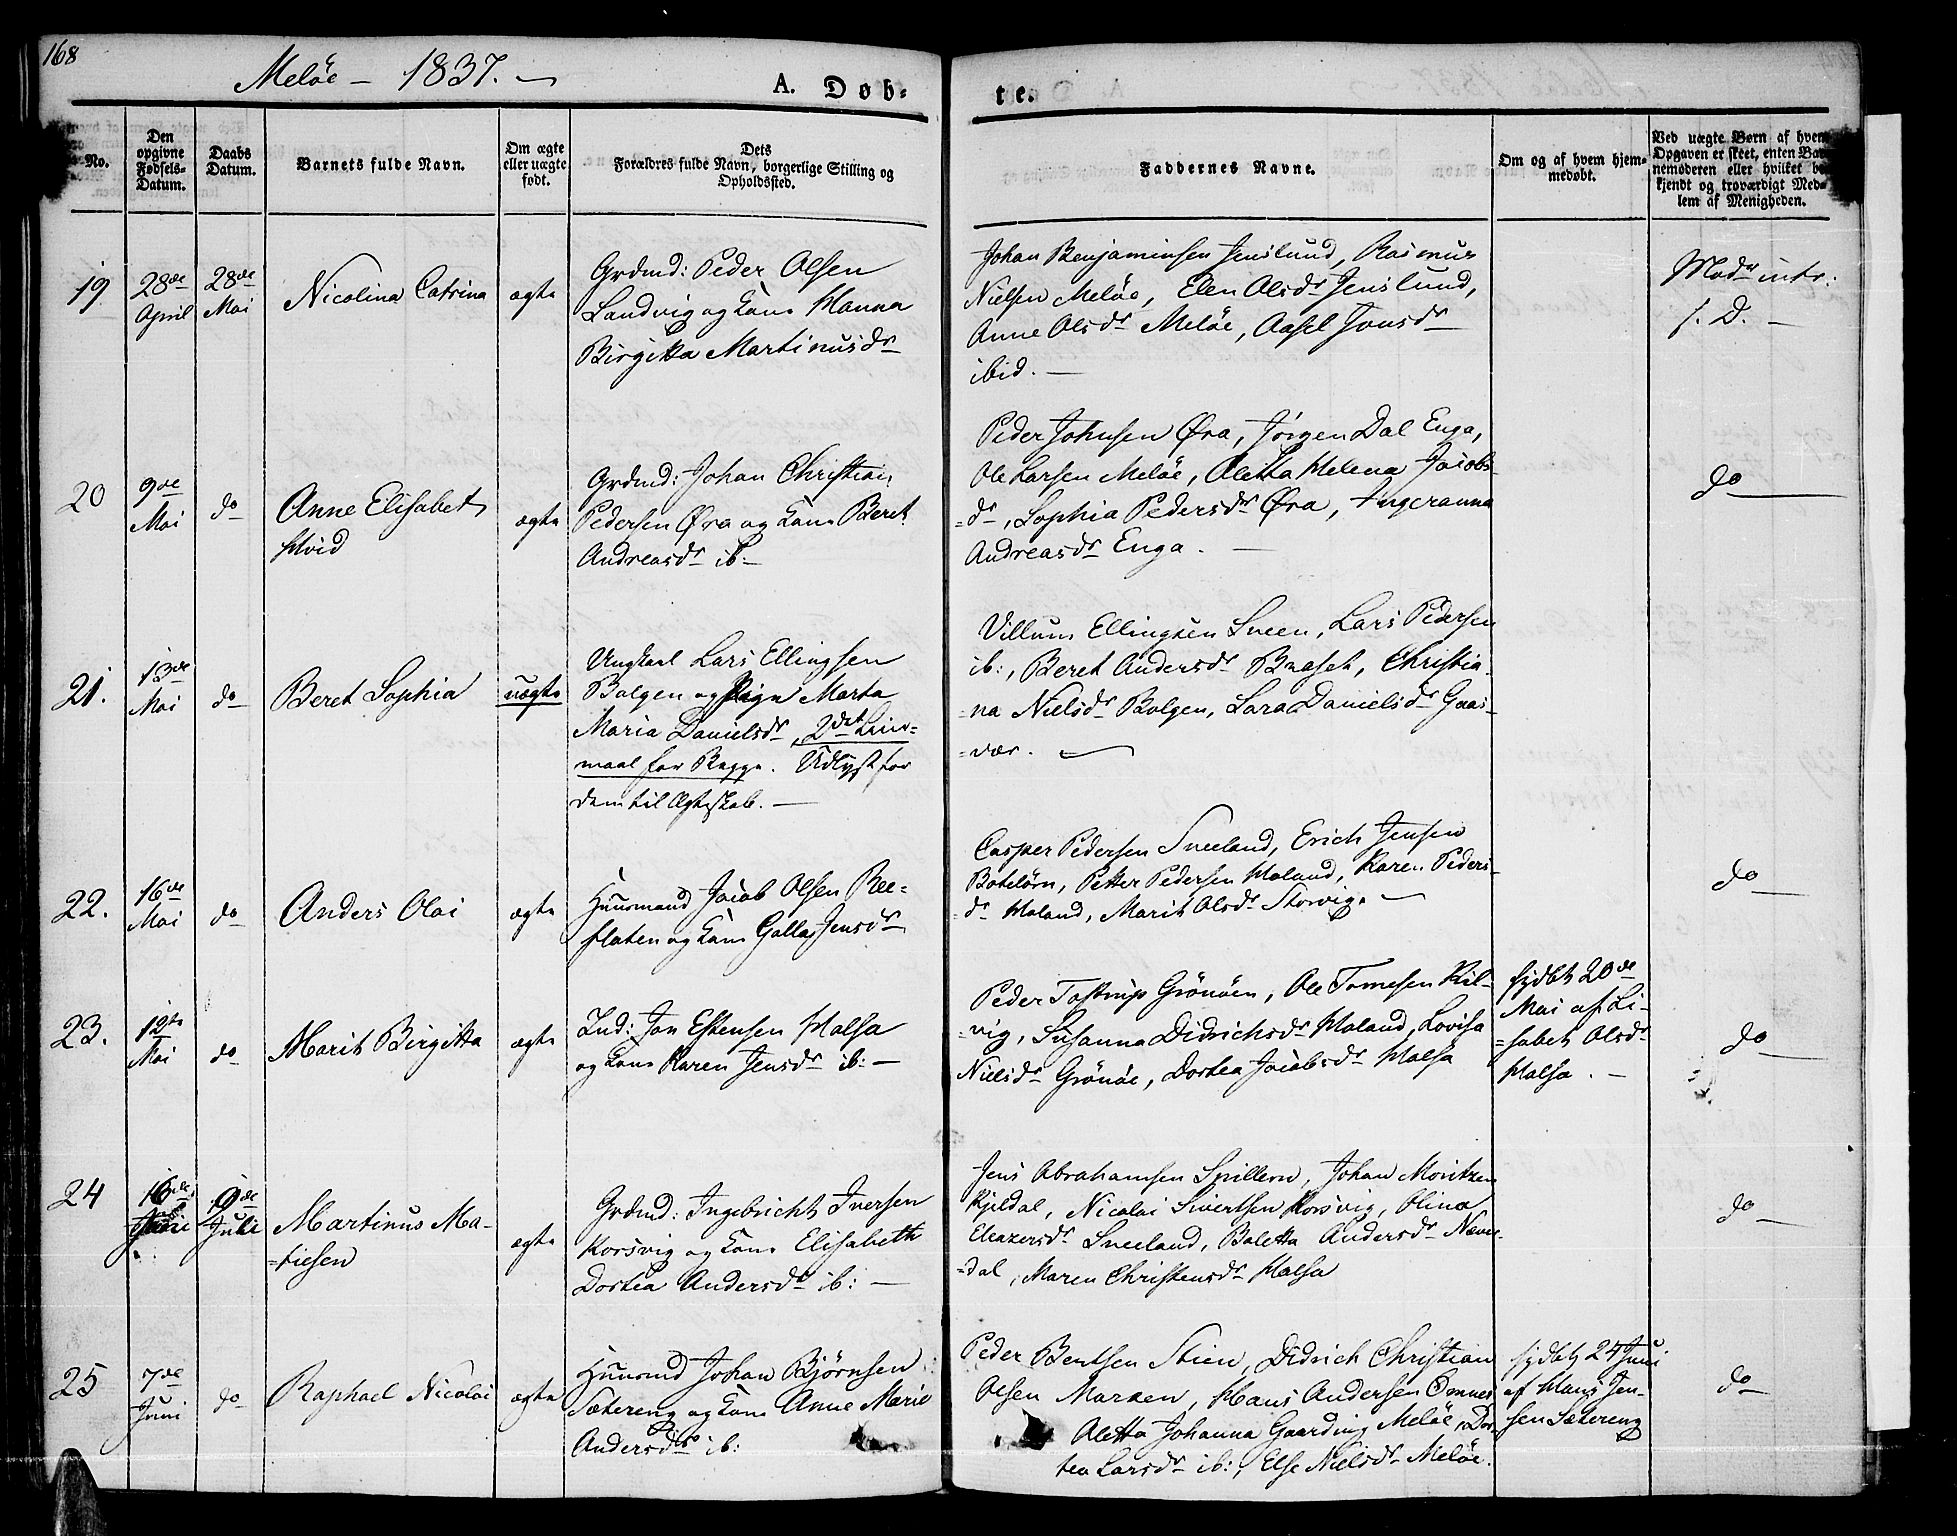 168
Meløe – 1837. –
A. Døb-
te.
No.
Den
opgivne
Fødsels-
Datum.
Daabs
Datum.
Barnets fulde Navn.
Om ægte
eller uægte
født.
Dets
Forældres fulde Navn, borgerlige Stilling og
Opholdssted.
Faddernes Navne.
Om og af hvem hjem-
medøbt.
Ved uægte Børn af hvem
Opgaven er skeet, enten Bar-
nemoderen eller hvilket be-
kjendt og troværdigt Med-
lem af Menigheden.
19.
28de
April
28de
Mai
Nicolina Catrina
ægte
Grdmd: Peder Olsen
Landvig og Kone Hanna
Birgitta Martinusdr
Johan Benjaminsen Jenslund, Rasmus
Nielsen Meløe, Elen Olsdr Jenslund,
Anne Olsdr Meløe, Aasel Jonsdr
ibid. –
Modr intr:
s. D. –
20
9de
Mai
do
Anne Elisabet
Hvid
ægte
Grdmd: Johan Christian
Pedersen Øra og Kone Beret
Andreasdr ib. –
Peder Johnsen Øra, Jörgen Dal Enga,
Ole Larsen Meløe, Aletta Helena Jacobs-
=dr, Sophia Pedersdr Øra, Ingeranna
Andreasdr Enga. –
do –
21.
13de
Mai
do
Beret Sophia
uægte
Ungkarl Lars Ellingsen
Bolgen og Pige Marta
Maria Danielsdr, 2det Leier-
maal for Begge. Udlyst for
dem til Ægteskab. –
Villum Ellingsen Sneen, Lars Pedersen
ib:, Beret Andersdr Braset, Christia-
=na Nielsdr Bolgen, Lara Danielsdr Gaas-
=vær. –
22.
16de
Mai
do
Anders Olai
ægte
Huusmand Jacob Olsen Ree-
flaten og Kone Golla Jensdr
Casper Pedersen Sneeland, Erich Jensen
Boteløen, Petter Pedersen Haland, Karen Peders-
=dr Haland, Marit Olsdr Storvig. –
do –
23.
12te
Mai
do
Marit Birgitta
ægte
Ind: Jon Estensen Halsa
og Kone Karen Jensdr ib: –
Peder Tostrup Grönöen, Ole Tomesen Kil-
=vig, Susanna Didrichsdr Haland, Lovisa
Nielsdr Grönöe, Dortea Jacobsdr Halsa
hjdbt 20de
Mai af Li-
=sabet Olsdr
Halsa. –
do –
24
16de
9de
Juli
Martinus Ma-
=tiesen
ægte
Grdmd: Ingebricht Iversen
Korsvig og Kone Elisabeth
Dortea Andersdr ib: –
Jens Abrahamsen Spilleren, Johan Moritzen
Kjeldal, Nicolai Sivertsen Korsvig, Olina
Eleazersdr Sneeland, Baletta Andersdr Næver-
=dal, Maren Christensdr Halsa
do –
25
7de
Juni
do
Raphael Nicolai
ægte
Huusmd Johan Bjørnsen
Sætereng og Kone Anne Marie
Andersdr ib:
Peder Bentsen Stien, Didrich Christian
Olsen Marken, Hans Andersen Ømnes
Aletta Johanna Gaarding Meløe, Dor-
tea Larsdr ib:, Else Nielsdr Meløe.
hjdbt 24 Juni
af Hans Jen-
sen Sætereng
do –